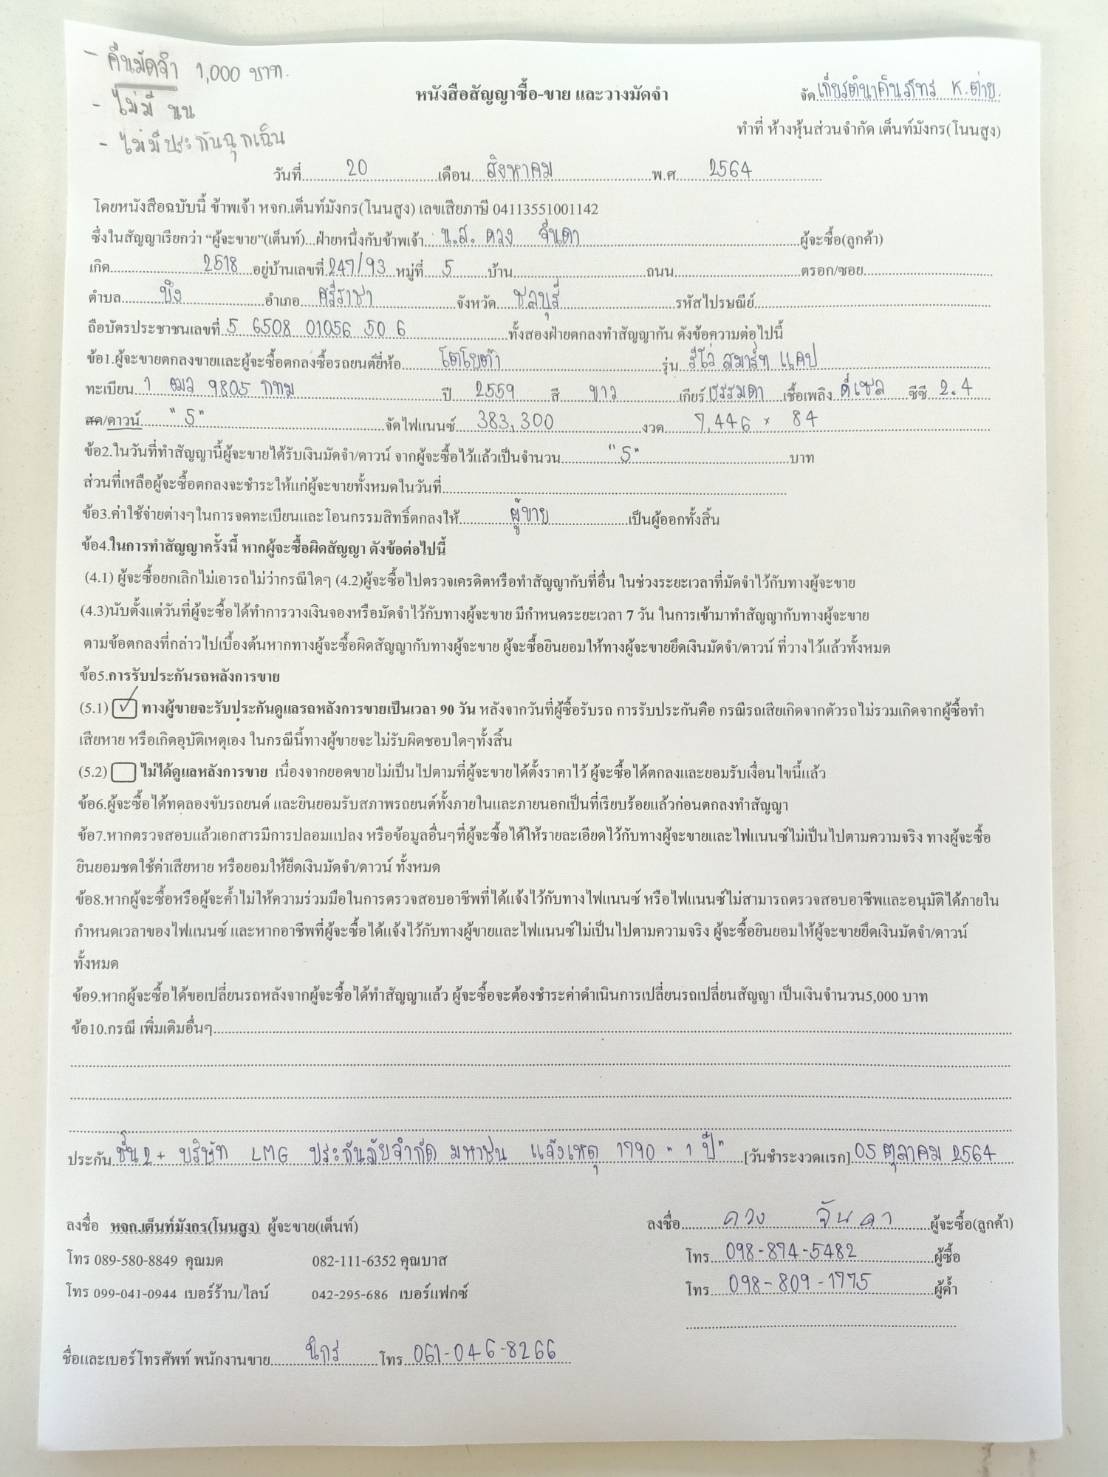 - คืนมัดจำ 1,000 บาท.
- ไม่มี นน
- ไม่มีประกันฉุกเฉิน
หนังสือสัญญาซื้อ-ขาย และวางมัดจำ
จัด เกียรตินาคินภัทร K.ต่าย.
ทำที่ ห้างหุ้นส่วนจำกัด เต็นท์มังกร(โนนสูง)
วันที่ 20 เดือน สิงหาคม พ.ศ. 2564
โดยหนังสือฉบับนี้ ข้าพเจ้า หจก.เต็นท์มังกร(โนนสูง) เลขเสียภาษี 04113551001142
ซึ่งในสัญญาเรียกว่า "ผู้จะขาย"(เต็นท์)...ฝ่ายหนึ่งกับข้าพเจ้า น.ส. ดวง จันดา ผู้จะซื้อ(ลูกค้า)
เกิด 2518 อยู่บ้านเลขที่ 247/93 หมู่ที่ 5 บ้าน ถนน ตรอก/ซอย
ตำบล บึง อำเภอ ศรีราชา จังหวัด ชลบุรี รหัสไปรษณีย์
ถือบัตรประชาชนเลขที่ 5 6508 01056 50 6 ทั้งสองฝ่ายตกลงทำสัญญากัน ดังข้อความต่อไปนี้
ข้อ1.ผู้จะขายตกลงขายและผู้จะซื้อตกลงซื้อรถยนต์ยี่ห้อ โตโยต้า รุ่น รีโว่ สมาร์ท แคป
ทะเบียน 1 ฒว 9805 กทม ปี 2559 สี ขาว เกียร์ ธรรมดา เชื้อเพลิง ดีเซล ซีซี 2.4
สด/ดาวน์ "5" จัดไฟแนนซ์ 383,300 งวด 7,446 x 84
ข้อ2.ในวันที่ทำสัญญานี้ผู้จะขายได้รับเงินมัดจำ/ดาวน์ จากผู้จะซื้อไว้แล้วเป็นจำนวน "5" บาท
ส่วนที่เหลือผู้จะซื้อตกลงจะชำระให้แก่ผู้จะขายทั้งหมดในวันที่
ข้อ3.ค่าใช้จ่ายต่างๆในการจดทะเบียนและโอนกรรมสิทธิ์ตกลงให้ ผู้ขาย เป็นผู้ออกทั้งสิ้น
ข้อ4.ในการทำสัญญาครั้งนี้ หากผู้จะซื้อผิดสัญญา ดังข้อต่อไปนี้
(4.1) ผู้จะซื้อยกเลิกไม่เอารถไม่ว่ากรณีใดๆ (4.2)ผู้จะซื้อไปตรวจเครดิตหรือทำสัญญากับที่อื่น ในช่วงระยะเวลาที่มัดจำไว้กับทางผู้จะขาย
(4.3)นับตั้งแต่วันที่ผู้จะซื้อได้ทำการวางเงินจองหรือมัดจำไว้กับทางผู้จะขาย มีกำหนดระยะเวลา 7 วัน ในการเข้ามาทำสัญญากับทางผู้จะขาย
ตามข้อตกลงที่กล่าวไปเบื้องต้นหากทางผู้จะซื้อผิดสัญญากับทางผู้จะขาย ผู้จะซื้อยินยอมให้ทางผู้จะขายยึดเงินมัดจำ/ดาวน์ ที่วางไว้แล้วทั้งหมด
ข้อ5.การรับประกันรถหลังการขาย
(5.1) ✓ ทางผู้ขายจะรับประกันดูแลรถหลังการขายเป็นเวลา 90 วัน หลังจากวันที่ผู้ซื้อรับรถ การรับประกันคือ กรณีรถเสียเกิดจากตัวรถ ไม่รวมเกิดจากผู้ซื้อทำ
เสียหาย หรือเกิดอุบัติเหตุเอง ในกรณีนี้ทางผู้ขายจะไม่รับผิดชอบใดๆทั้งสิ้น
(5.2) ไม่ได้ดูแลหลังการขาย เนื่องจากยอดขายไม่เป็นไปตามที่ผู้จะขายได้ตั้งราคาไว้ ผู้จะซื้อได้ตกลงและยอมรับเงื่อนไขนี้แล้ว
ข้อ6.ผู้จะซื้อได้ทดลองขับรถยนต์ และยินยอมรับสภาพรถยนต์ทั้งภายในและภายนอกเป็นที่เรียบร้อยแล้วก่อนตกลงทำสัญญา
ข้อ7.หากตรวจสอบแล้วเอกสารมีการปลอมแปลง หรือข้อมูลอื่นๆที่ผู้จะซื้อได้ให้รายละเอียดไว้กับทางผู้จะขายและไฟแนนซ์ไม่เป็นไปตามความจริง ทางผู้จะซื้อ
ยินยอมชดใช้ค่าเสียหาย หรือยอมให้ยึดเงินมัดจำ/ดาวน์ ทั้งหมด
ข้อ8.หากผู้จะซื้อหรือผู้จะค้ำไม่ให้ความร่วมมือในการตรวจสอบอาชีพที่ได้แจ้งไว้กับทางไฟแนนซ์ หรือไฟแนนซ์ไม่สามารถตรวจสอบอาชีพและอนุมัติได้ภายใน
กำหนดเวลาของไฟแนนซ์ และหากอาชีพที่ผู้จะซื้อได้แจ้งไว้กับทางผู้ขายและไฟแนนซ์ไม่เป็นไปตามความจริง ผู้จะซื้อยินยอมให้ผู้จะขายยึดเงินมัดจำ/ดาวน์
ทั้งหมด
ข้อ9.หากผู้จะซื้อได้ขอเปลี่ยนรถหลังจากผู้จะซื้อได้ทำสัญญาแล้ว ผู้จะซื้อจะต้องชำระค่าดำเนินการเปลี่ยนรถเปลี่ยนสัญญา เป็นเงินจำนวน5,000 บาท
ข้อ10.กรณี เพิ่มเติมอื่นๆ
ประกัน ชั้น 2+ บริษัท LMG ประกันภัยจำกัด มหาชน แจ้งเหตุ 1790 "1 ปี" [วันชำระงวดแรก] 05 ตุลาคม 2564
ลงชื่อ หจก.เต็นท์มังกร(โนนสูง) ผู้จะขาย(เต็นท์) ลงชื่อ ดวง จันดา ผู้จะซื้อ(ลูกค้า)
โทร 089-580-8849 คุณมด 082-111-6352 คุณบาส โทร 098-874-5482 ผู้ซื้อ
โทร 099-041-0944 เบอร์ร้าน/ไลน์ 042-295-686 เบอร์แฟกซ์ โทร 098-809-1775 ผู้ค้ำ
ชื่อและเบอร์โทรศัพท์ พนักงานขาย นิกร โทร 061-046-8266